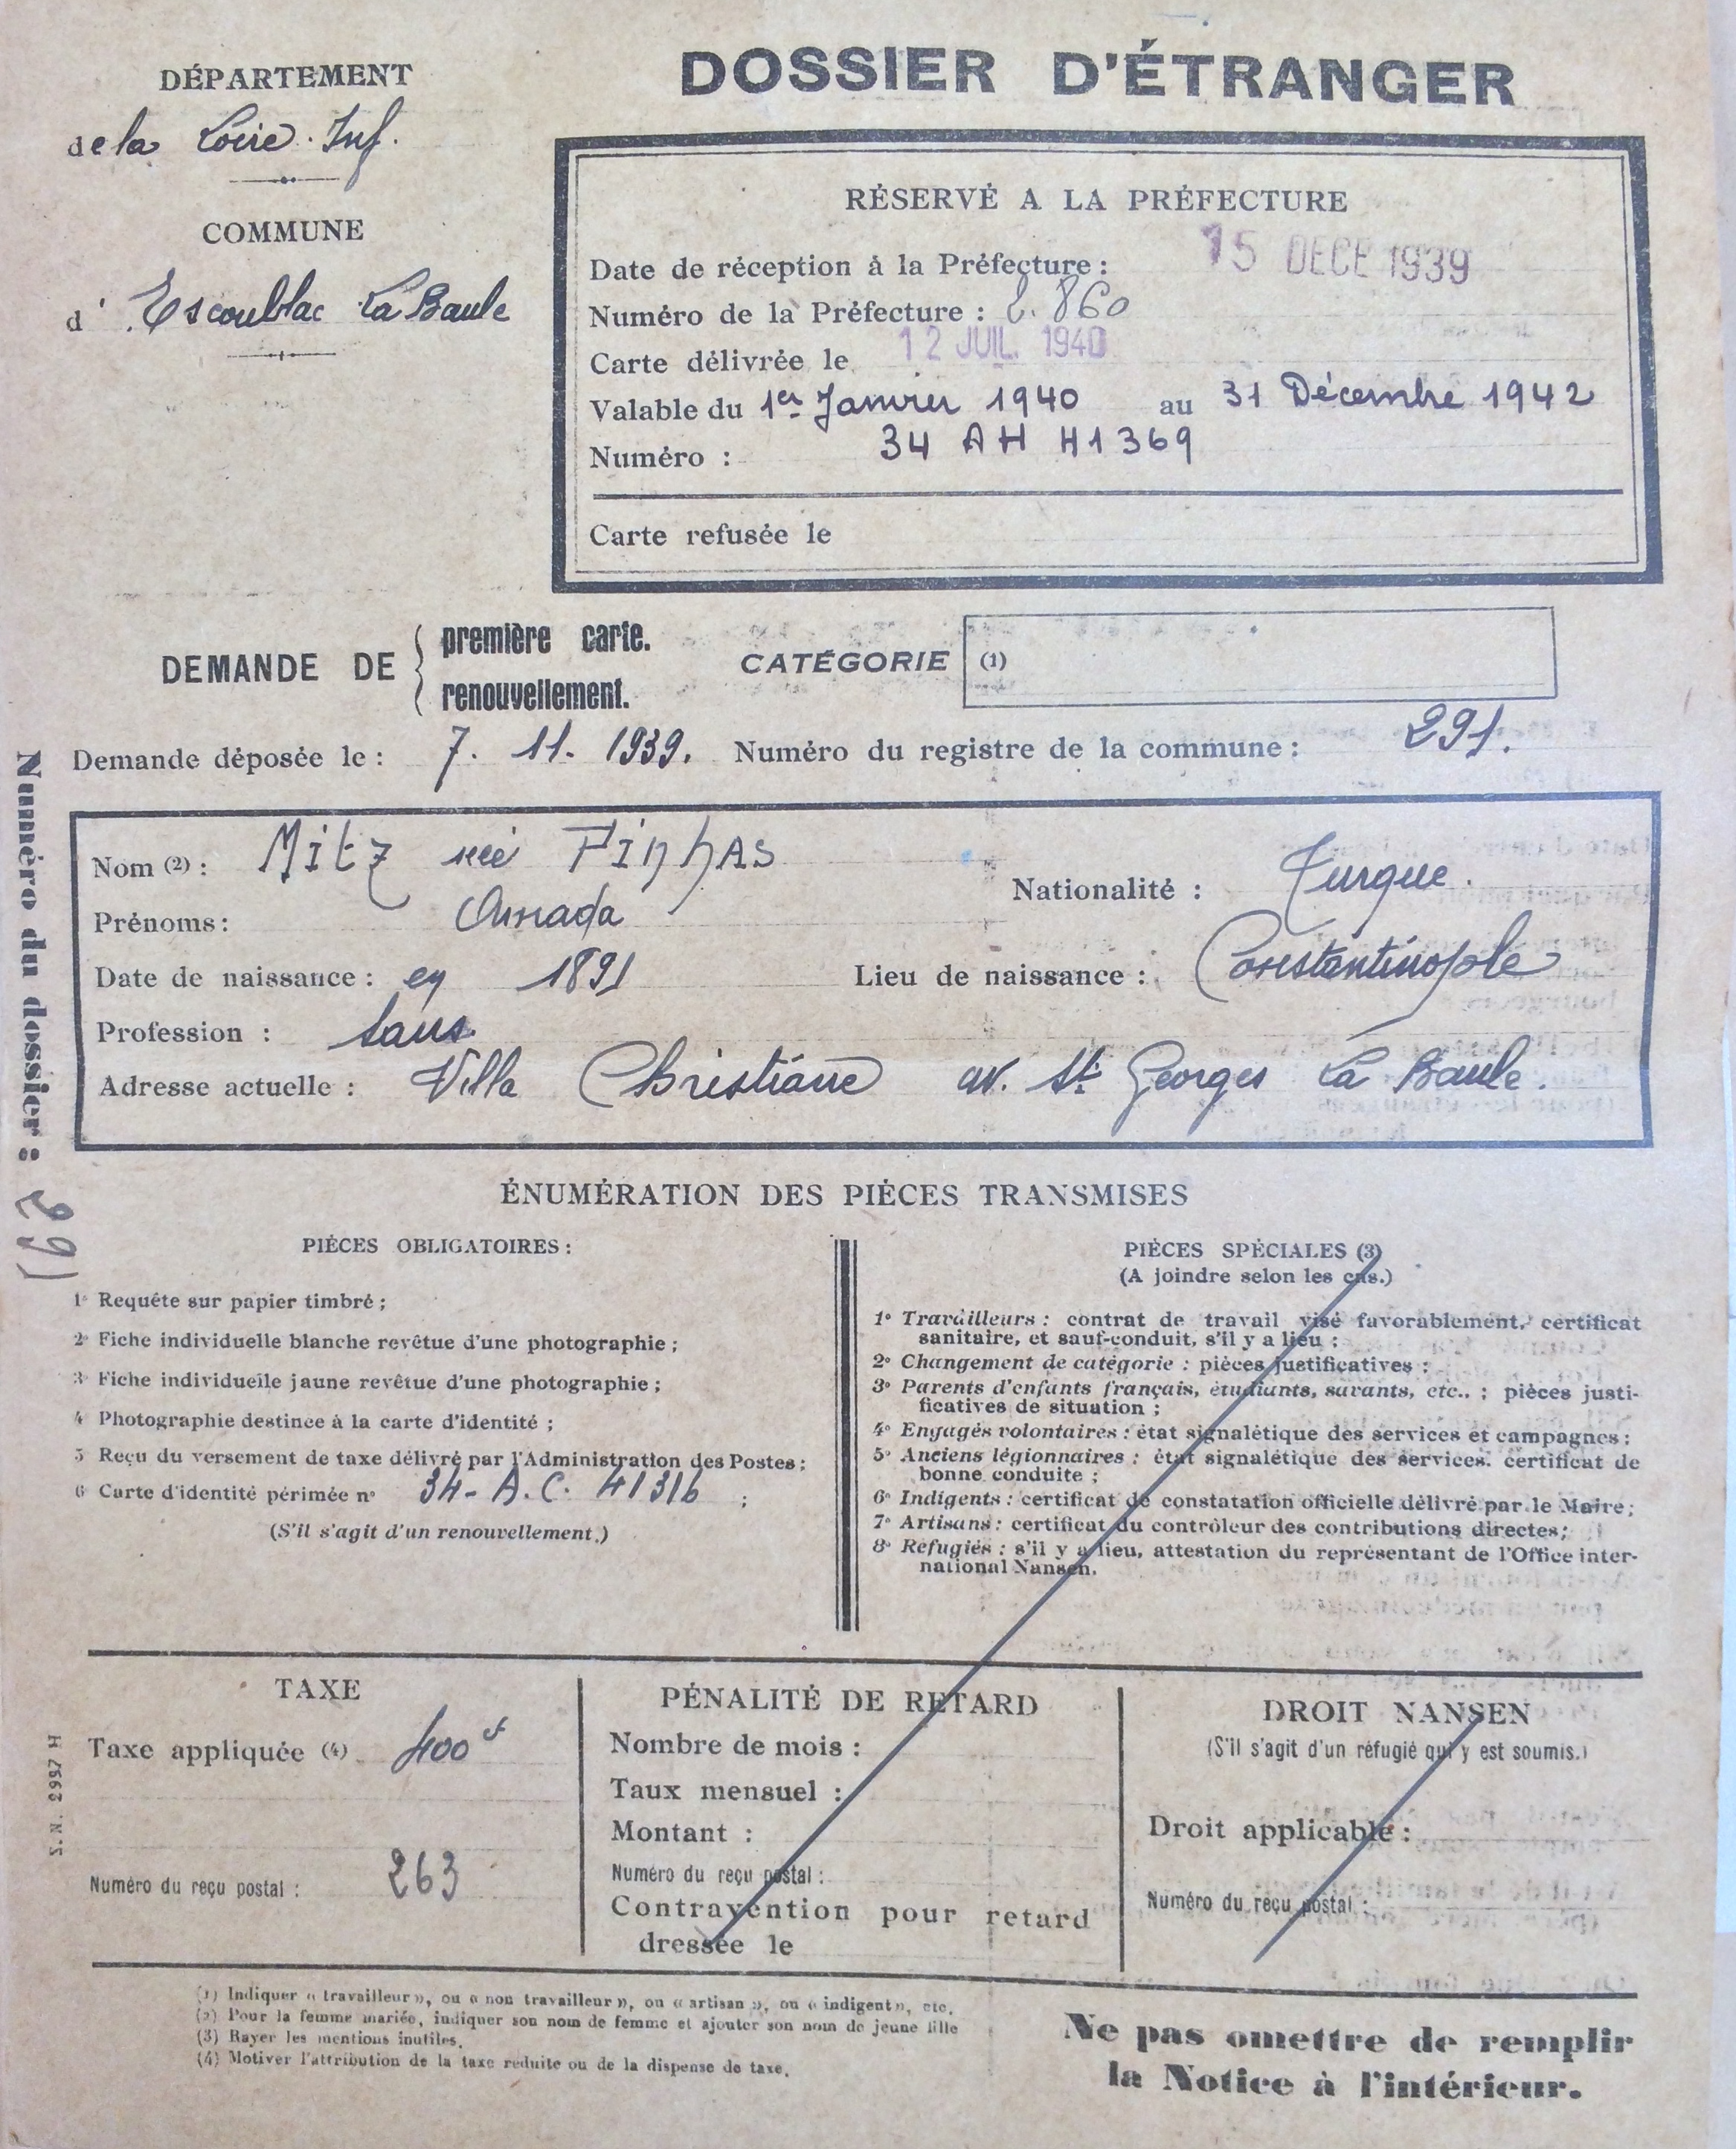 DOSSIER D'ÉTRANGER
DÉPARTEMENT
de la Loire. Inf.
COMMUNE
d' Escoublac La Baule
RÉSERVÉ A LA PRÉFECTURE
Date de réception à la Préfecture : 15 DECE 1939
Numéro de la Préfecture : 860
Carte délivrée le 12 JUIL. 1940
Valable du 1er Janvier 1940 au 31 Décembre 1942
Numéro : 34 AH H1369
Carte refusée le
DEMANDE DE
première carte.
renouvellement.
CATÉGORIE (1)
Demande déposée le : 7. 11. 1939. Numéro du registre de la commune : 291.
Numéro du dossier : 291
Nom (2) : Mitz née Pinhas
Nationalité : Turque.
Prénoms : Amada
Date de naissance : en 1891 Lieu de naissance : Constantinople
Profession : sans
Adresse actuelle : Villa Christiane av. St Georges La Baule.
ÉNUMÉRATION DES PIÈCES TRANSMISES
PIÈCES OBLIGATOIRES :
1° Requête sur papier timbré ;
2° Fiche individuelle blanche revêtue d'une photographie ;
3° Fiche individuelle jaune revêtue d'une photographie ;
4° Photographie destinée à la carte d'identité ;
5° Reçu du versement de taxe délivré par l'Administration des Postes ;
6° Carte d'identité périmée n° 34 - A.C. 41316 ;
(S'il s'agit d'un renouvellement.)
PIÈCES SPÉCIALES (3)
(A joindre selon les cas.)
1° Travailleurs : contrat de travail visé favorablement, certificat
sanitaire, et sauf-conduit, s'il y a lieu ;
2° Changement de catégorie : pièces justificatives ;
3° Parents d'enfants français, étudiants, savants, etc., : pièces justi-
ficatives de situation ;
4° Engagés volontaires : état signalétique des services et campagnes ;
5° Anciens légionnaires : état signalétique des services, certificat de
bonne conduite ;
6° Indigents : certificat de constatation officielle délivré par le Maire ;
7° Artisans : certificat du contrôleur des contributions directes ;
8° Réfugiés : s'il y a lieu, attestation du représentant de l'Office inter-
national Nansen.
TAXE
Taxe appliquée (4) 400 f
Numéro du reçu postal : 263
PÉNALITÉ DE RETARD
Nombre de mois :
Taux mensuel :
Montant :
Numéro du reçu postal :
Contravention pour retard
dressée le
DROIT NANSEN
(S'il s'agit d'un réfugié qui y est soumis.)
Droit applicable :
Numéro du reçu postal :
S. N. 2957 H
(1) Indiquer « travailleur », ou « non travailleur », ou « artisan », ou « indigent », etc.
(2) Pour la femme mariée, indiquer son nom de femme et ajouter son nom de jeune fille
(3) Rayer les mentions inutiles.
(4) Motiver l'attribution de la taxe réduite ou de la dispense de taxe.
Ne pas omettre de remplir
la Notice à l'intérieur.